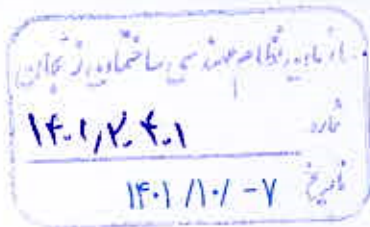 سازمان نظام مهندسی ساختمان زنجان
شماره ۱۴۰۱/۳۰۴۰۱
تاریخ ۱۴۰۱/۱۰/-۷